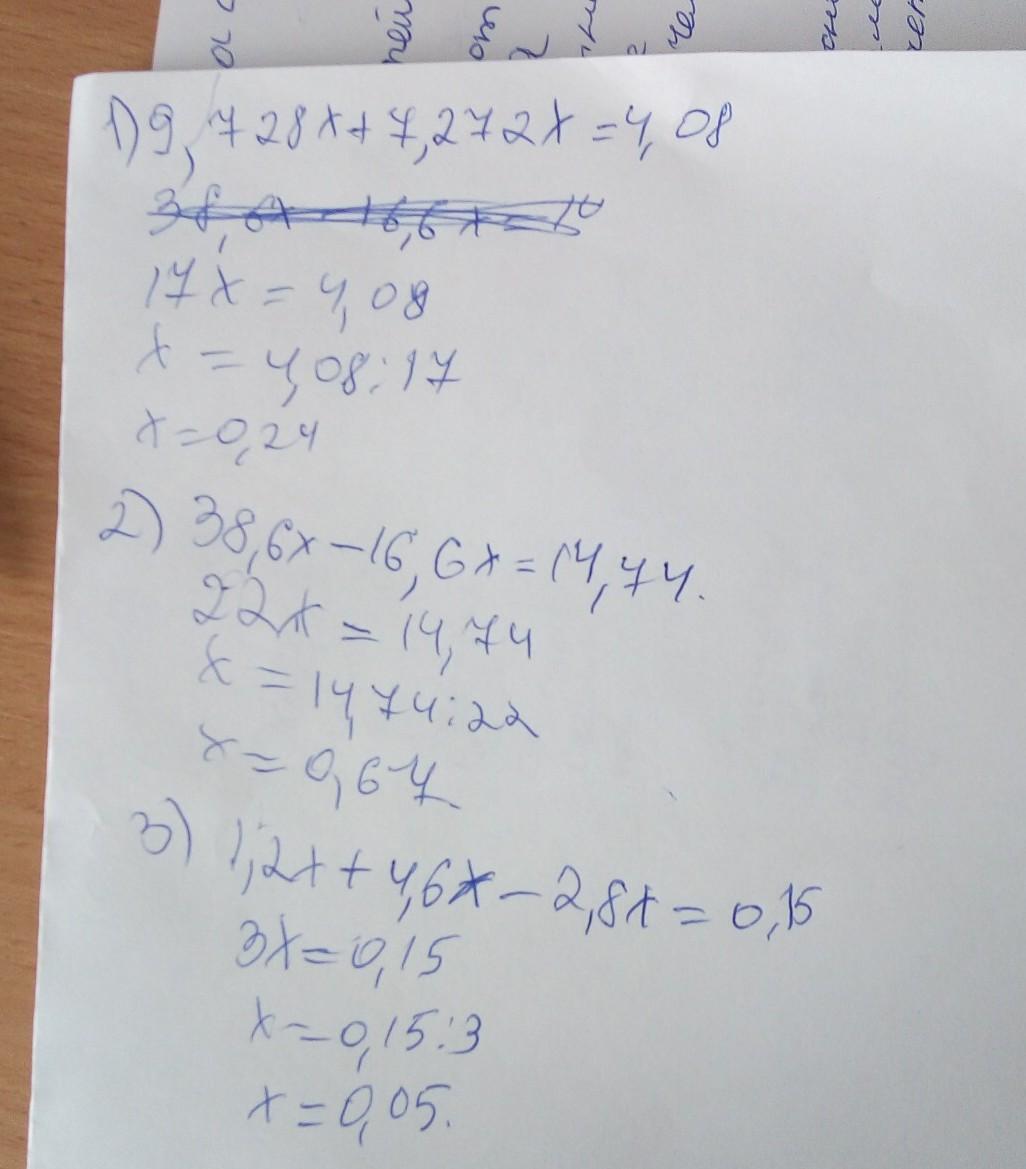 1) 9,728x+7,272x=4,08
38,6x-16,6x=1
17x=4,08
x=4,08:17
x=0,24
2) 38,6x-16,6x=14,74.
22x=14,74
x=14,74:22
x=0,67
3) 1,2x+4,6x-2,8x=0,15
3x=0,15
x=0,15:3
x=0,05.